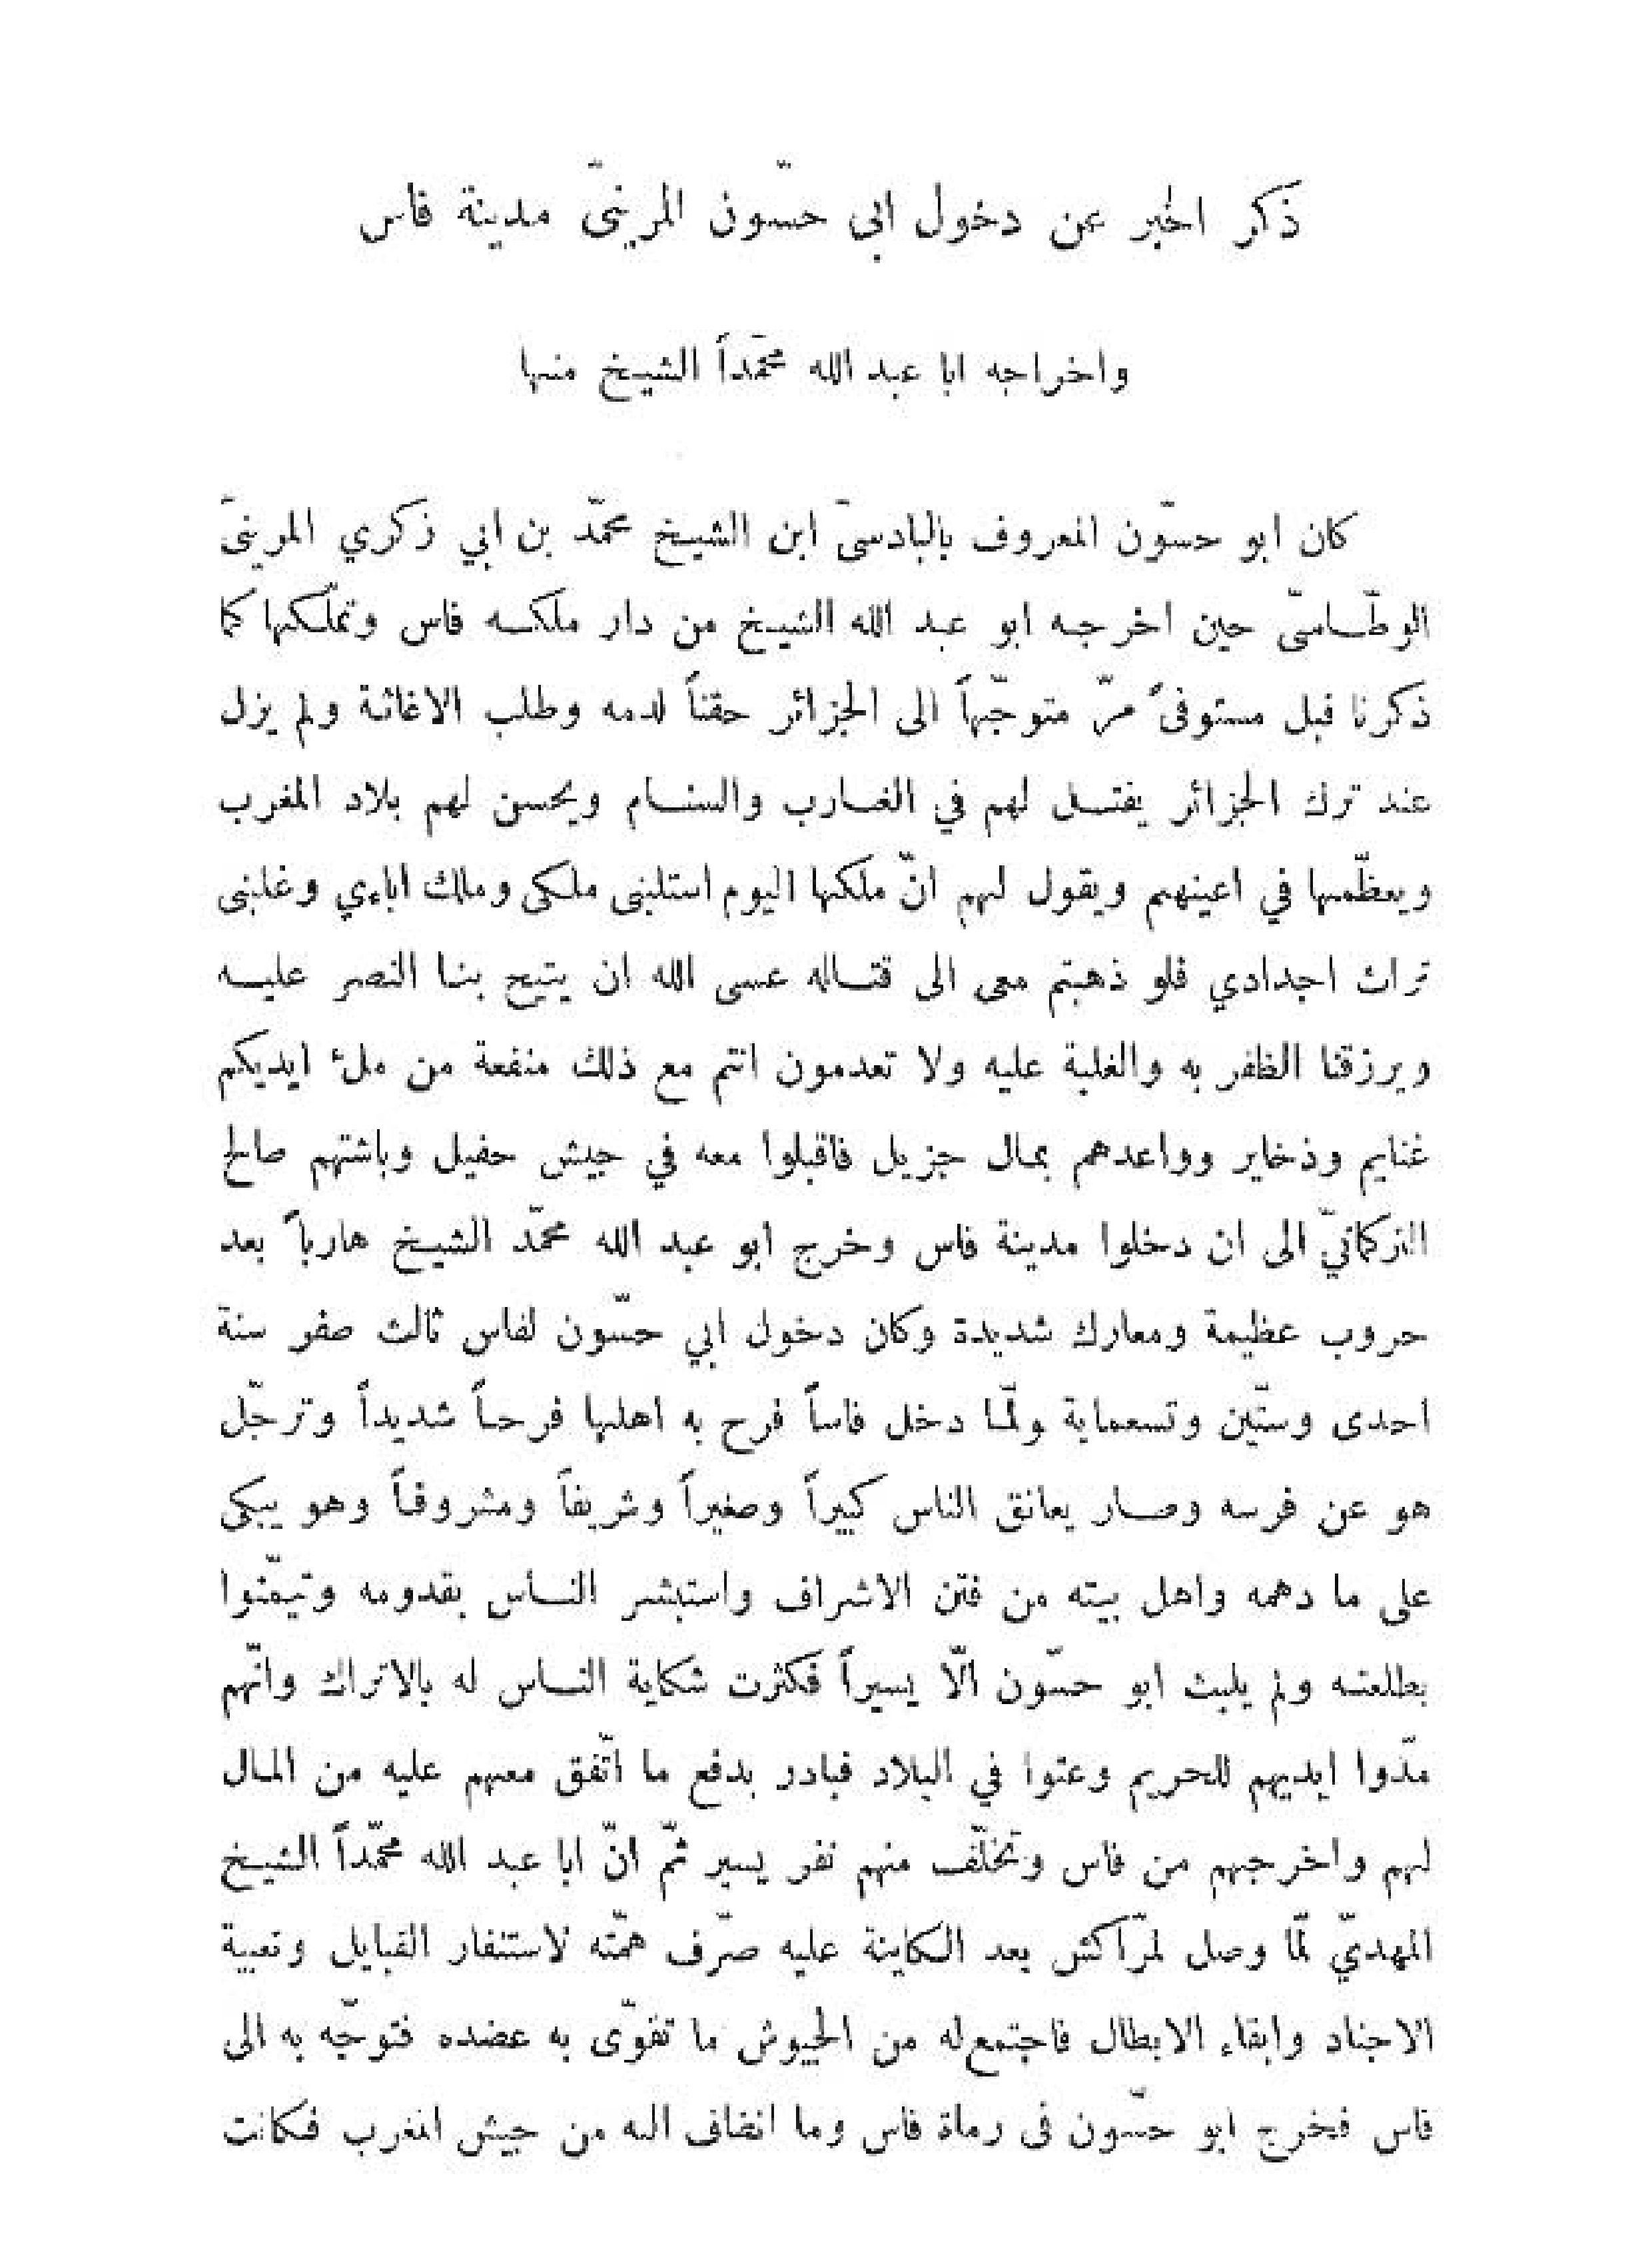 ذكر الخبر عن دخول ابى حسّون المرينىّ مدينة فاس
واخراجه ابا عبد الله محمّداً الشيخ منها
كان ابو حسّون المعروف بالبادسىّ ابن الشيخ محمّد بن ابي زكري المرينىّ
الوطّاسىّ حين اخرجه ابو عبد الله الشيخ من دار ملكه فاس وتملّكها كما
ذكرنا قبل مستوفىً مرّ متوجّهاً الى الجزائر حقناً لدمه وطلب الاغاثة ولم يزل
عند ترك الجزائر يفتل لهم في الغارب والسنام ويحسن لهم بلاد المغرب
ويعظّمها في اعينهم ويقول لهم انّ ملكها اليوم استلبنى ملكى وملك اباءي وغلبنى
تراث اجدادي فلو ذهبتم معى الى قتاله عسى الله ان يتيح بنا النصر عليه
ويرزقنا الظفر به والغلبة عليه ولا تعدمون انتم مع ذلك منفعة من ملئ ايديكم
غنايم وذخاير وواعدهم بمال جزيل فاقبلوا معه في جيش حفيل وباشتهم صالح
التركمانيّ الى ان دخلوا مدينة فاس وخرج ابو عبد الله محمّد الشيخ هارباً بعد
حروب عظيمة ومعارك شديدة وكان دخول ابي حسّون لفاس ثالث صفر سنة
احدى وستّين وتسعماية ولمّا دخل فاساً فرح به اهلها فرحاً شديداً وترجّل
هو عن فرسه وصار يعانق الناس كبيراً وصغيراً وشريفاً ومشروفاً وهو يبكى
على ما دهمه واهل بيته من فتن الاشراف واستبشر الناس بقدومه وتيمّنوا
بطلعته ولم يلبث ابو حسّون الّا يسيراً فكثرت شكاية الناس له بالاتراك وانّهم
مدّوا ايديهم للحريم وعثوا في البلاد فبادر بدفع ما اتّفق معهم عليه من المال
لهم واخرجهم من فاس وتخلّف منهم نفر يسير ثمّ انّ ابا عبد الله محمّداً الشيخ
المهديّ لمّا وصل لمرّاكش بعد الكاينة عليه صرّف همّته لاستنفار القبايل وتعبية
الاجناد وابقاء الابطال فاجتمع له من الجيوش ما تقوّى به عضده فتوجّه به الى
فاس فخرج ابو حسّون فى رماة فاس وما انضاف اله من جيش المغرب فكانت